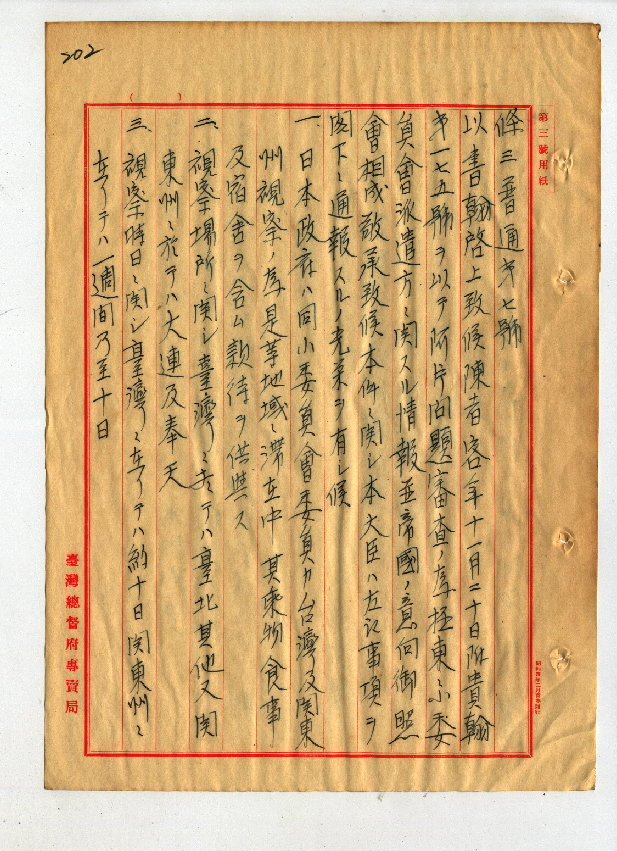 202
第三號用紙
條三普通第七號
以書翰啓上致候陳者客年十一月二十日附貴翰
第一七五號ヲ以テ阿片問題審査ノ為極東ニ小委
員會派遣方ニ関スル情報並帝國ノ意向御照
會相成敬承致候本件ニ関シ本大臣ハ左記事項ヲ
閣下ニ通報スルノ光栄ヲ有シ候
一、日本政府ハ同小委員會委員カ台灣及関東
州視察ノ為是等地域ニ滞在中其乗物食事
及宿舎ヲ含ム款待ヲ供與ス
二、視察場所ニ関シ臺灣ニ在リテハ臺北其他又関
東州ニ於テハ大連及奉天
三、視察時日ニ関シ臺灣ニ在リテハ約十日関東州ニ
在リテハ一週間乃至十日
臺灣總督府專賣局